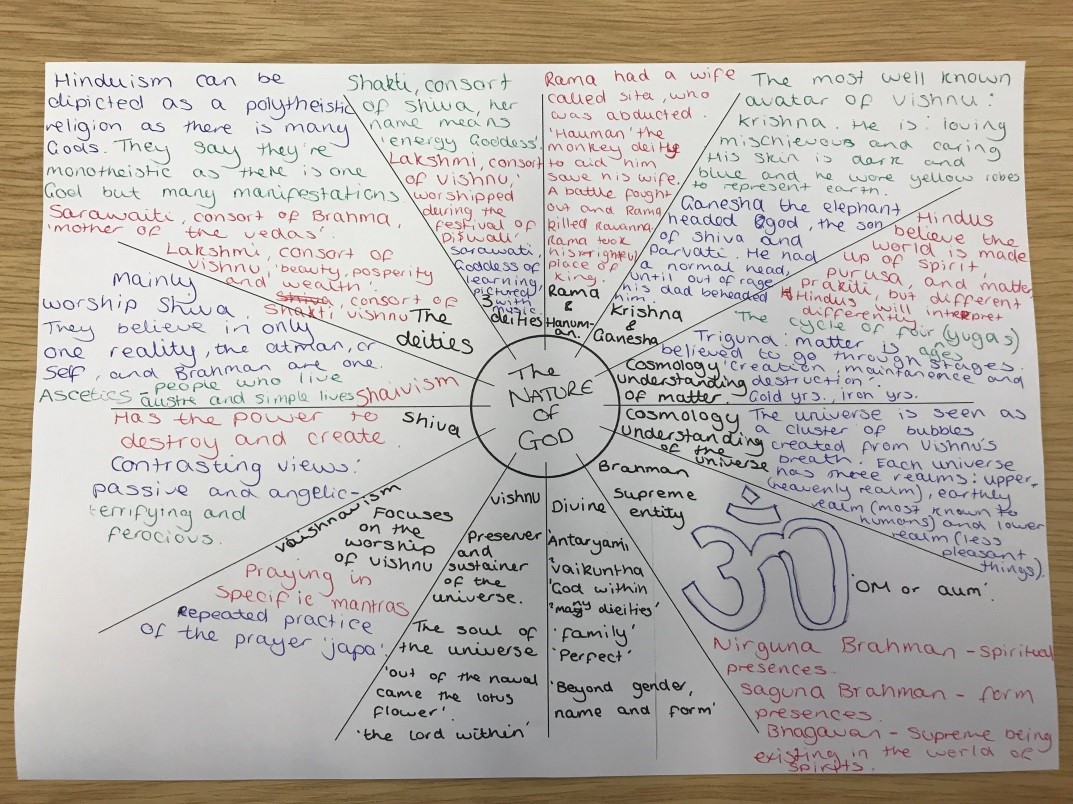 Hinduism can be
dipicted as a polytheistic
religion as there is many
Gods. They say they're
monotheistic as there is one
God but many manifestations
Sarawaiti, consort of Brahma,
'mother of the vedas'.
Lakshmi, consort of
vishnu, 'beauty, posperity
and wealth'.
Shakti, consort of
vishnu
The
deities
Shakti, consort
of Shiva, her
name means
'energy Goddess'.
Lakshmi, consort
of vishnu,
worshipped
during the
festival of
Diswali.
Sarawati,
Goddess of
learning,
pictured
with
music.
3
deities
Rama had a wife
called sita, who
was abducted.
'Hauman' the
monkey deity
to aid him
save his wife.
A battle fought
out and Rama
killed Ravanna
Rama took
his rightful
place of
king.
Rama
&
Hanum-
an.
The most well known
avatar of vishnu:
krishna. He is: loving
mischievous and caring
His skin is dark and
blue and he wore yellow robes
to represent earth.
Ganesha the elephant
headed god, the son
of Shiva and
Parvati. He had
a normal head,
until out of rage
his dad beheaded
him.
Krishna
&
Ganesha
Hindus
believe the
world is made
up of spirit,
purusa, and matter,
prakiti, but different
Hindus will interpret
differently
The cycle of four (yugas)
ages
Triguna: matter is
believed to go through stages.
'Creation, maintanence and
destruction'.
Gold yrs., iron yrs.
Cosmology
understanding
of matter.
Cosmology
understanding
of the
universe
The universe is seen as
a cluster of bubbles
created from Vishnu's
breath. Each universe
has three realms: upper-
(heavenly realm), earthly
realm (most known to
humans) and lower
realm (less
pleasant
things).
Brahman
supreme
entity
ॐ
'OM or aum'.
Nirguna Brahman - spiritual
presences.
saguna Brahman - form
presences.
Bhagavan - supreme being
existing in the world of
spirits.
Divine
Antaryami
vaikuntha
'God within
'many dieities'
'family'
'Perfect'
'Beyond gender,
name and form'
vishnu
Preserver
and
sustainer
of the
universe.
The soul of
the universe
'out of the naval
came the lotus
flower'.
'the lord within'
vaishnavism
Focuses
on the
worship
of vishnu
Praying in
specific mantras
Repeated practice
of the prayer 'japa'.
Shiva
Has the power to
destroy and create.
Contrasting views:
passive and angelic-
terrifying and
ferocious.
Mainly
worship Shiva.
They believe in only
one reality, the atman, or
self, and Brahman are one.
Ascetics people who live
austre and simple lives
Shaivism
The
NATURE
OF
GOD